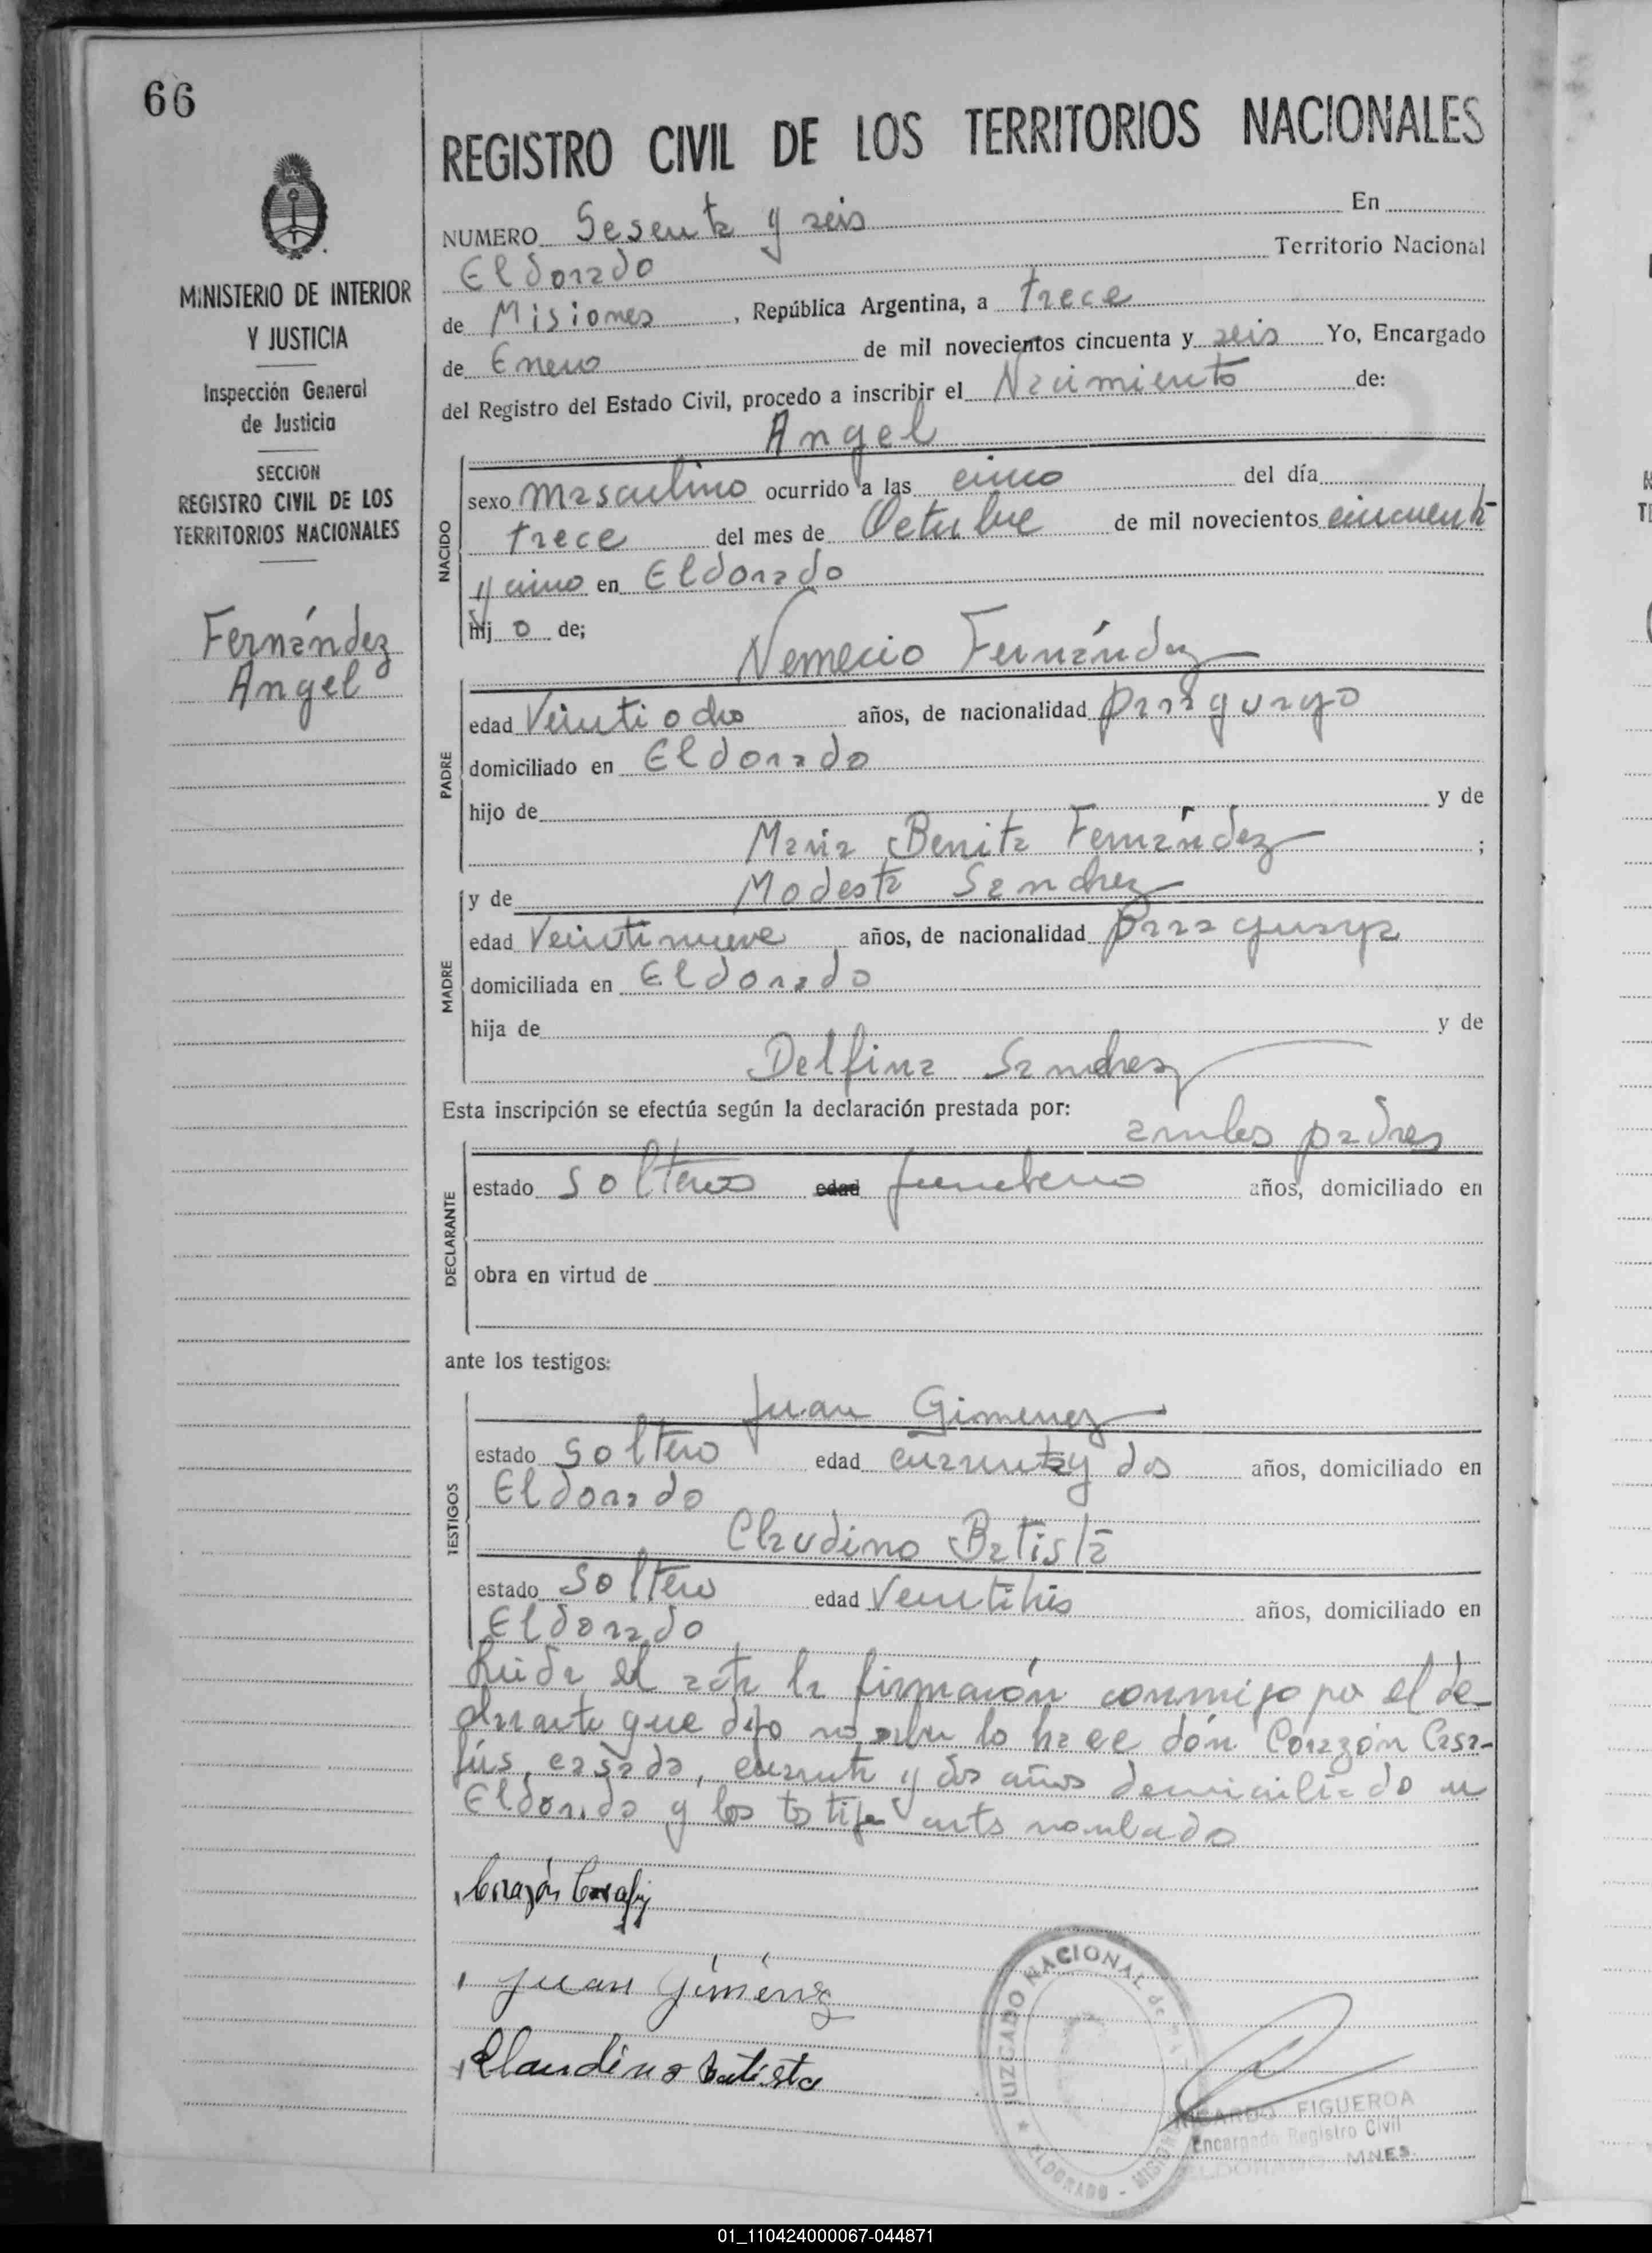 66
MINISTERIO DE INTERIOR
Y JUSTICIA
Inspección General
de Justicia
SECCION
REGISTRO CIVIL DE LOS
TERRITORIOS NACIONALES
Fernández
Angel
REGISTRO CIVIL DE LOS TERRITORIOS NACIONALES
NUMERO Sesenta y seis En
Eldorado Territorio Nacional
de Misiones, República Argentina, a trece
de Enero de mil novecientos cincuenta y seis Yo, Encargado
del Registro del Estado Civil, procedo a inscribir el Nacimiento de:
Angel
NACIDO
sexo masculino ocurrido a las cinco del día
trece del mes de Octubre de mil novecientos cincuenta
y cinco en Eldorado
hijo de;
Nemecio Fernández
PADRE
edad Veintiocho años, de nacionalidad paraguayo
domiciliado en Eldorado
hijo de y de
Maria Benita Fernández ;
MADRE
y de Modesta Sanchez
edad Veintinueve años, de nacionalidad paraguaya
domiciliada en Eldorado
hija de y de
Delfina Sanchez
Esta inscripción se efectúa según la declaración prestada por:
ambos padres
DECLARANTE
estado solteros edad años, domiciliado en
obra en virtud de
ante los testigos:
TESTIGOS
Juan Gimenez
estado soltero edad cuarenta y dos años, domiciliado en
Eldorado
Claudino Batista
estado soltero edad años, domiciliado en
Eldorado
Leida el acta la firmarón conmigo por el de-
clarante que dijo no saber lo hace dón Corazón
casado, cuarenta y dos años domiciliado en
Eldorado y los testigos antes nombrado
Corazón
Juan Giménez
Claudino Batista
JUZGADO NACIONAL de
ELDORADO - MISIONES
RICARDO FIGUEROA
Encargado Registro Civil
ELDORADO MNES.
01_110424000067-044871